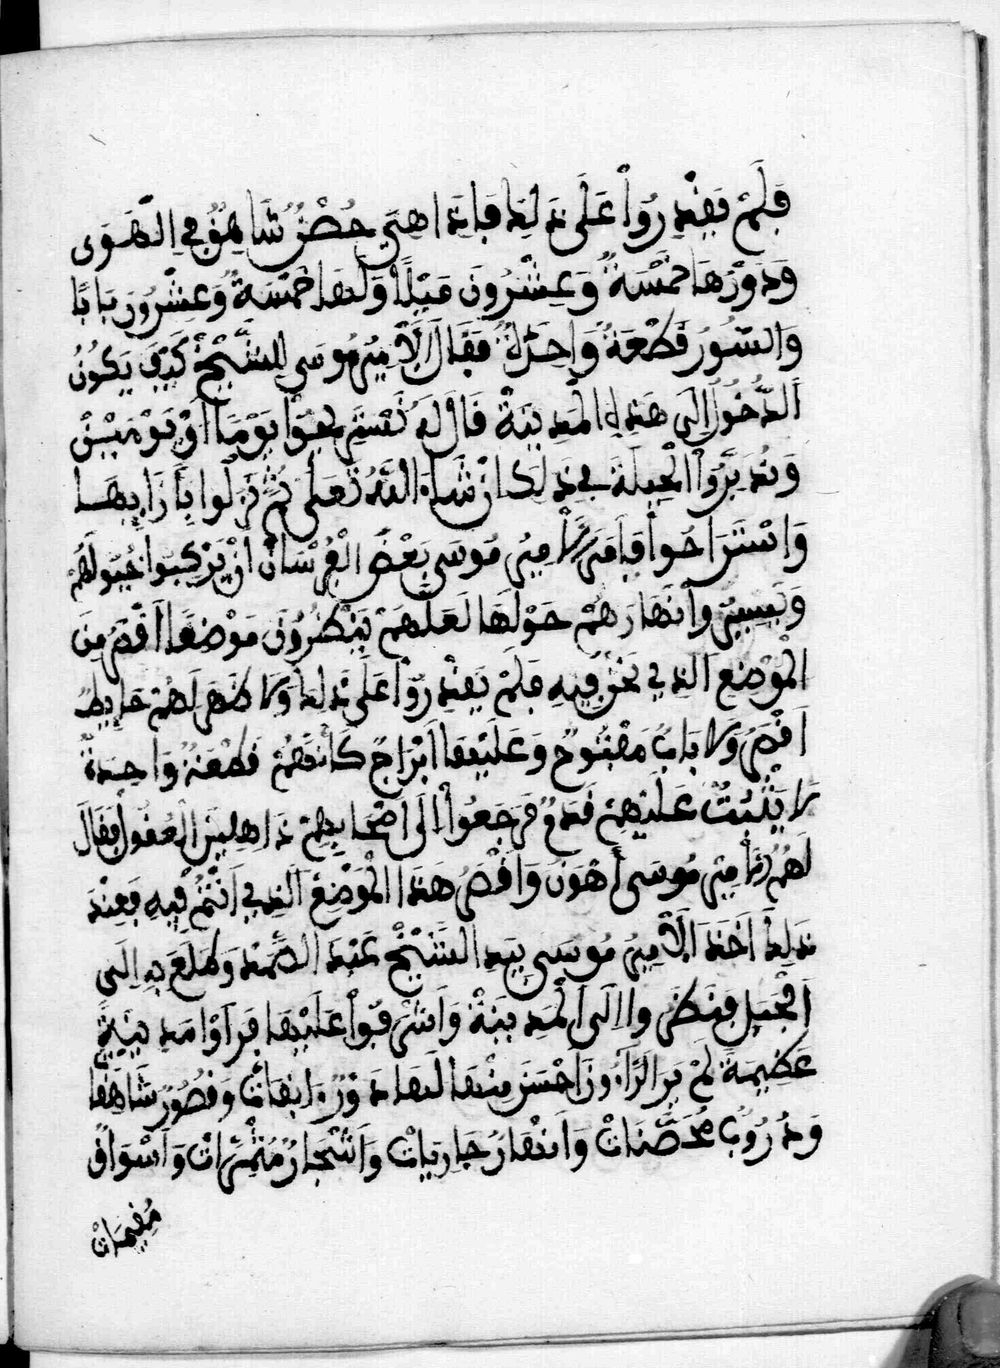 فَلَمْ يَقْدِرُواْ عَلَى ذَلِكَ فَإِذَا هِيَ حُصْنٌ شَاهِقٌ فِي الْهَوَى
وَدَوْرُهَا خَمْسَةٌ وَعِشْرُونَ مَيْلًا وَلَهَا خَمْسَةٌ وَعِشْرُونَ بَابًا
وَالسُّورُ قَطْعَةٌ وَاحِدَةٌ فَقَالَ الْأَمِيرُ مُوسَى لِلشَّيْخِ كَيْفَ يَكُونُ
الدُّخُولُ إِلَى هَذِهِ الْمَدِينَةِ قَالَ لَهُ نَسْتَرِيحُواْ يَوْمًا أَوْ يَوْمَيْنِ
وَنُدَبِّرُواْ الْحِيلَةَ فِي ذَلِكَ إِنْ شَاءَ اللَّهُ تَعَلَى ثُمَّ نَزَلُوا بِأَزَايِهَا
وَاسْتَرَاحُواْ فَأَمَرَ الْأَمِيرُ مُوسَى بَعْضَ الْفُرْسَانِ أَنْ يَرْكِبُواْ خُيُولَهُمْ
وَيَسِيرُواْ نَهَارَهُمْ حَوْلَهَا لَعَلَّهُمْ يَنْظُرُونَ مَوْضِعًا أَقْصَرَ مِنَ
الْمَوْضِعِ الَّذِي نَحْنُ فِيهِ فَلَمْ يَقْدِرُواْ عَلَى ذَلِكَ وَلَا ظَهَرَ لَهُمْ حَايِطٌ
أَقْصَرُ وَلَا بَابٌ مَفْتُوحٌ وَعَلَيْهَا أَبْرَاجٌ كَأَنَّهُمْ قَطْعَةٌ وَاحِدَةٌ
لَا يَثْبُتُ عَلَيْهِمْ قَدَمٌ فَرَجَعُواْ إِلَى أَصْحَابِهِمْ ذَاهِلِينَ الْعُقُولِ فَقَالَ
لَهُمُ الْأَمِيرُ مُوسَى أَهْوَنُ وَأَقْصَرُ هَذَا الْمَوْضِعُ الَّذِي أَنْتُمْ فِيهِ فَعِنْدَ
ذَلِكَ أَخَذَ الْأَمِيرُ مُوسَى بِيَدِ الشَّيْخِ عَبْدِ الصَّمَدِ وَطَلَعَ بِهِ إِلَى
الْجَبَلِ فَنَظَرُوا إِلَى الْمَدِينَةِ وَأَشْرَفُواْ عَلَيْهَا فَرَأَوْا مَدِينَةً
عَظِيمَةً لَمْ يَرَ الرَّاءُونَ أَحْسَنَ مِنْهَا لَهَا دُورٌ وَقُصُورٌ شَاهِقَا
وَدُرُوبٌ مُحَصَّنَاتٌ وَأَنْهَارٌ جَارِيَاتٌ وَأَشْجَارٌ مُثْمِرَاتٌ وَأَسْوَاقٌ